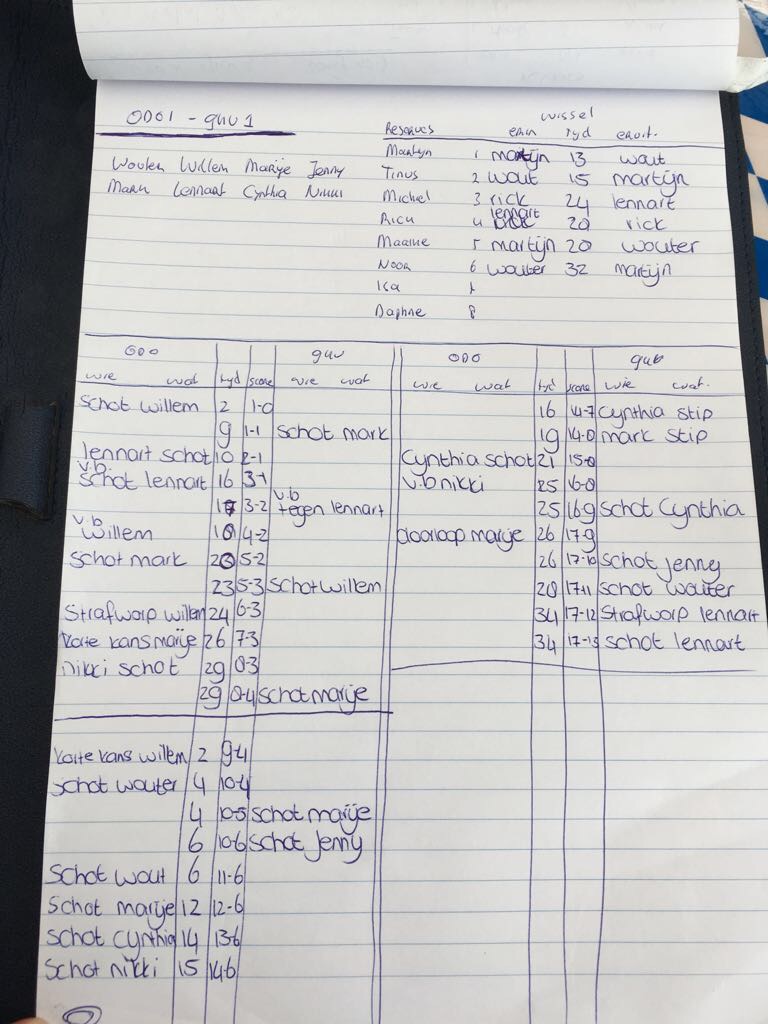 ODO1 - gkv 1
Wouter Willem Marije Jenny
Mark Lennart Cynthia Nikki
wissel
Reserves erin tyd eruit.
Martyn 1 martijn 13 wout
Tinus 2 wout 15 martijn
Michel 3 rick 24 lennart
Rick 4 lennart 20 rick
Maaike 5 martijn 20 wouter
Noor 6 wouter 32 martijn
Ica 7
Daphne 8
ODO gkv
wie wat tyd score wie wat
Schot willem 2 1-0
9 1-1 schot mark
lennart schot 10 2-1
v.b
schot lennart 16 3-1
v.b
17 3-2 tegen lennart
v.b
willem 18 4-2
Schot mark 20 5-2
23 5-3 Schot willem
Strafworp willem 24 6-3
korte kans marije 26 7-3
nikki schot 29 8-3
29 8-4 Schot marije
korte kans willem 2 9-4
schot wouter 4 10-4
4 10-5 schot marije
6 10-6 schot Jenny
Schot wout 6 11-6
Schot marije 12 12-6
Schot cynthia 14 13-6
Schot nikki 15 14-6
ODO gkv
wie wat tyd score wie wat.
16 14-7 cynthia stip
19 14-8 mark stip
Cynthia schot 21 15-8
v.b nikki 25 16-8
25 16-9 schot Cynthia
doorloop marije 26 17-9
26 17-10 schot jenny
28 17-11 schot wouter
34 17-12 Strafworp lennart
34 17-13 schot lennart